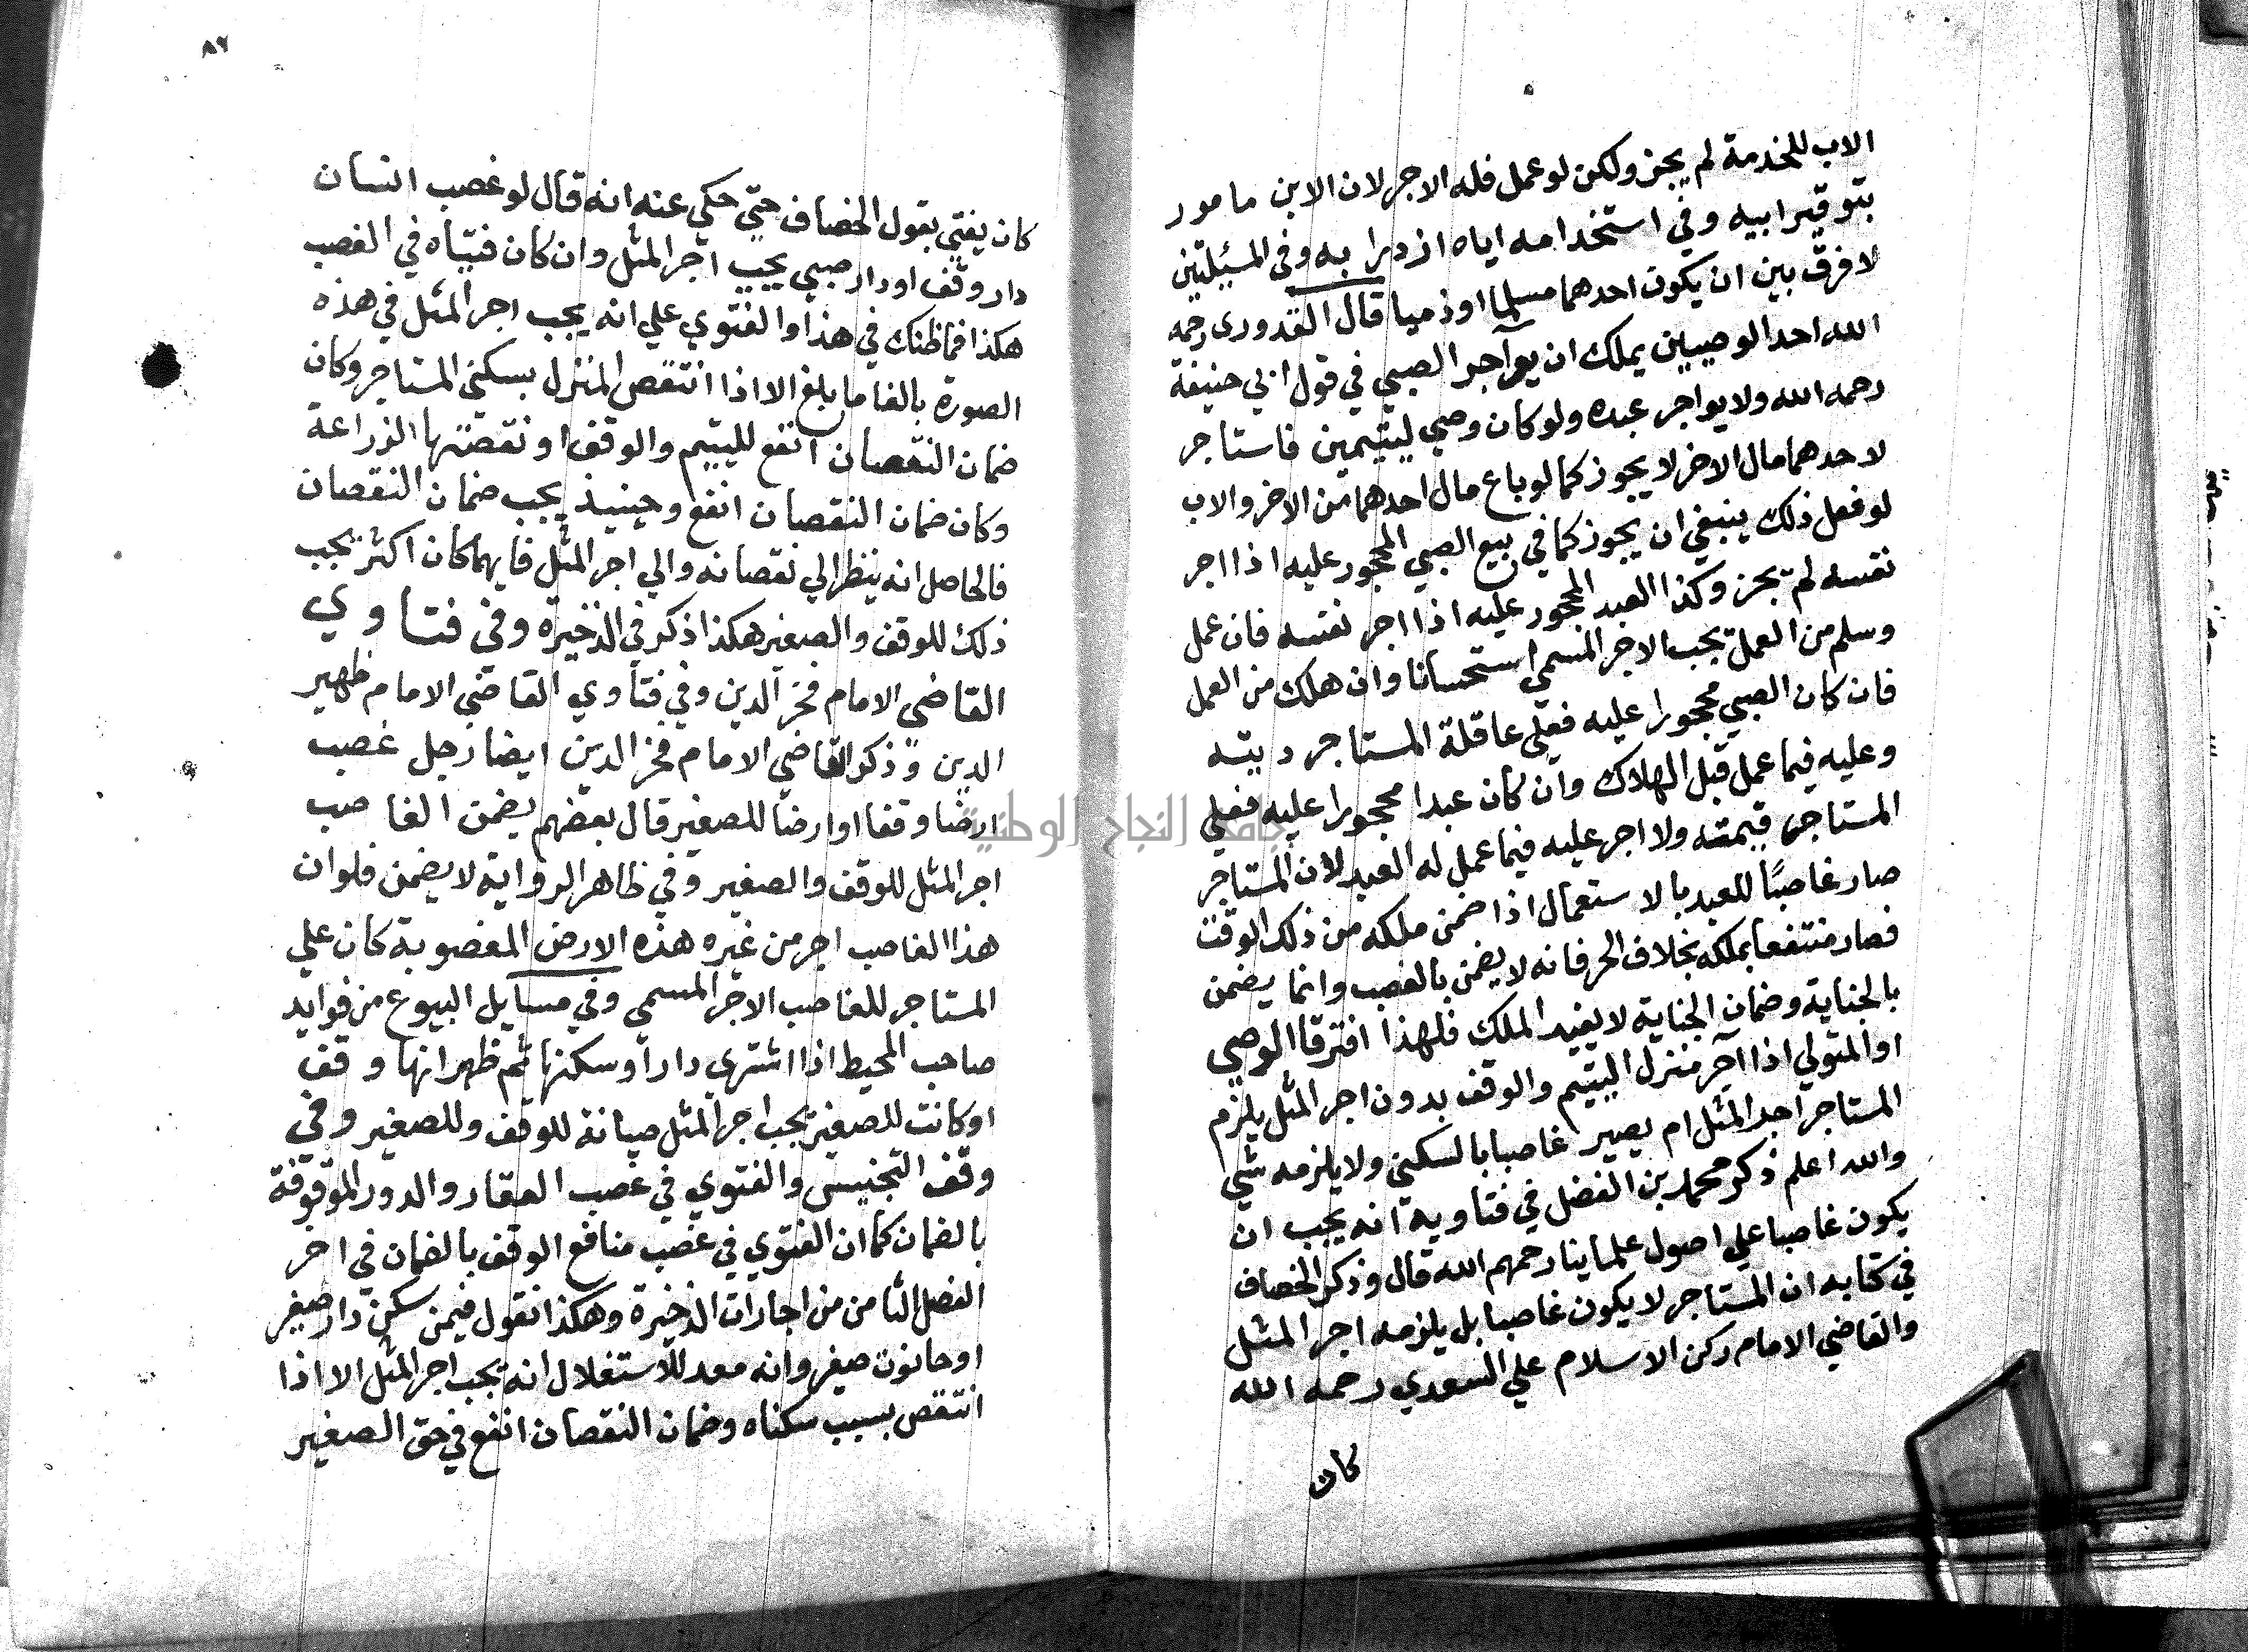 الاب للخدمة لم يجز ولكن لو عمل فله الاجر لان الابن مامور
بتوقير ابيه وفي استخدامه اياه ازدرا به وفي المسئلتين
لا فرق بين ان يكون احدهما مسلما او ذميا قال القدوري رحمه
الله احد الوصيين يملك ان يواجر الصبي في قول ابي حنيفة
رحمه الله ولا يواجر عبده ولو كان وصي ليتيمين فاستاجر
لاحدهما مال الاخر لا يجوز كما لو باع مال احدهما من الاخر والاب
لو فعل ذلك ينبغي ان يجوز كما في بيع الصبي المحجور عليه اذا اجر
نفسه لم يجز وكذا العبد المحجور عليه اذا اجر نفسه فان عمل
وسلم من العمل يجب الاجر المسمي استحسانا وان هلك من العمل
فان كان الصبي محجورا عليه فعلي عاقلة المستاجر ديته
وعليه فيما عمل قبل الهلاك وان كان عبدا محجورا عليه فعلي
المستاجر قيمته ولا اجر عليه فيما عمل له العبد لان المستاجر
صار غاصبا للعبد بالاستعمال اذا ضمن ملكه من ذلك الوقت
فصار منتفعا بملكه بخلاف الحر فانه لا يضمن بالغصب وانما يضمن
بالجناية وضمان الجناية لا يفيد الملك فلهذا افترقا الوصي
او المتولي اذا آجر منزل اليتيم والوقف بدون اجر المثل يلزم
المستاجر اجر المثل ام يصير غاصبا بالسكني ولا يلزمه شي
والله اعلم ذكر محمد بن الفضل في فتاويه انه يجب ان
يكون غاصبا علي اصول علماينا رحمهم الله قال وذكر الخصاف
في كتابه ان المستاجر لا يكون غاصبا بل يلزمه اجر المثل
والقاضي الامام ركن الاسلام علي السعدي رحمه الله
كان
٨٦
كان يفتي بقول الخصاف حتي حكي عنه انه قال لو غصب انسان
دار وقف او دار صبي يجب اجر المثل وان كان فتياه في الغصب
هكذا فما ظنك في هذا والفتوي علي انه يجب اجر المثل في هذه
الصورة بالغا ما بلغ الا اذا انتقص المنزل بسكني المستاجر وكان
ضمان النقصان انفع لليتيم والوقف او نقصتها الزراعة
وكان ضمان النقصان انفع وحينيذ يجب ضمان النقصان
فالحاصل انه ينظر الي نقصانه والي اجر المثل فايهما كان اكثر يجب
ذلك للوقف والصغير هكذا ذكر في الذخيرة وفي فتاوي
القاضي الامام فخر الدين وفي فتاوي القاضي الامام ظهير
الدين وذكر القاضي الامام فخر الدين ايضا رجل غصب
ارضا وقفا او ارضا للصغير قال بعضهم يضمن الغاصب
اجر المثل للوقف والصغير وفي ظاهر الرواية لا يضمن فلو ان
هذا الغاصب اجر من غيره هذه الارض المغصوبة كان علي
المستاجر للغاصب الاجر المسمي وفي مسايل البيوع من فوايد
صاحب المحيط اذا اشتري دارا وسكنها ثم ظهر انها وقف
او كانت للصغير يجب اجر المثل صيانة للوقف وللصغير وفي
وقف التجنيس والفتوي في غصب العقار والدور الموقوفة
بالضمان كما ان الفتوي في غصب منافع الوقف بالضمان في اخر
الفصل الثامن من اجارات الذخيرة وهكذا نقول فيمن سكن دار صغير
او حانوت صغير وانه معد للاستغلال انه يجب اجر المثل الا اذا
انتقص بسبب سكناه وضمان النقصان انفع في حق الصغير
جامعة النجاح الوطنية